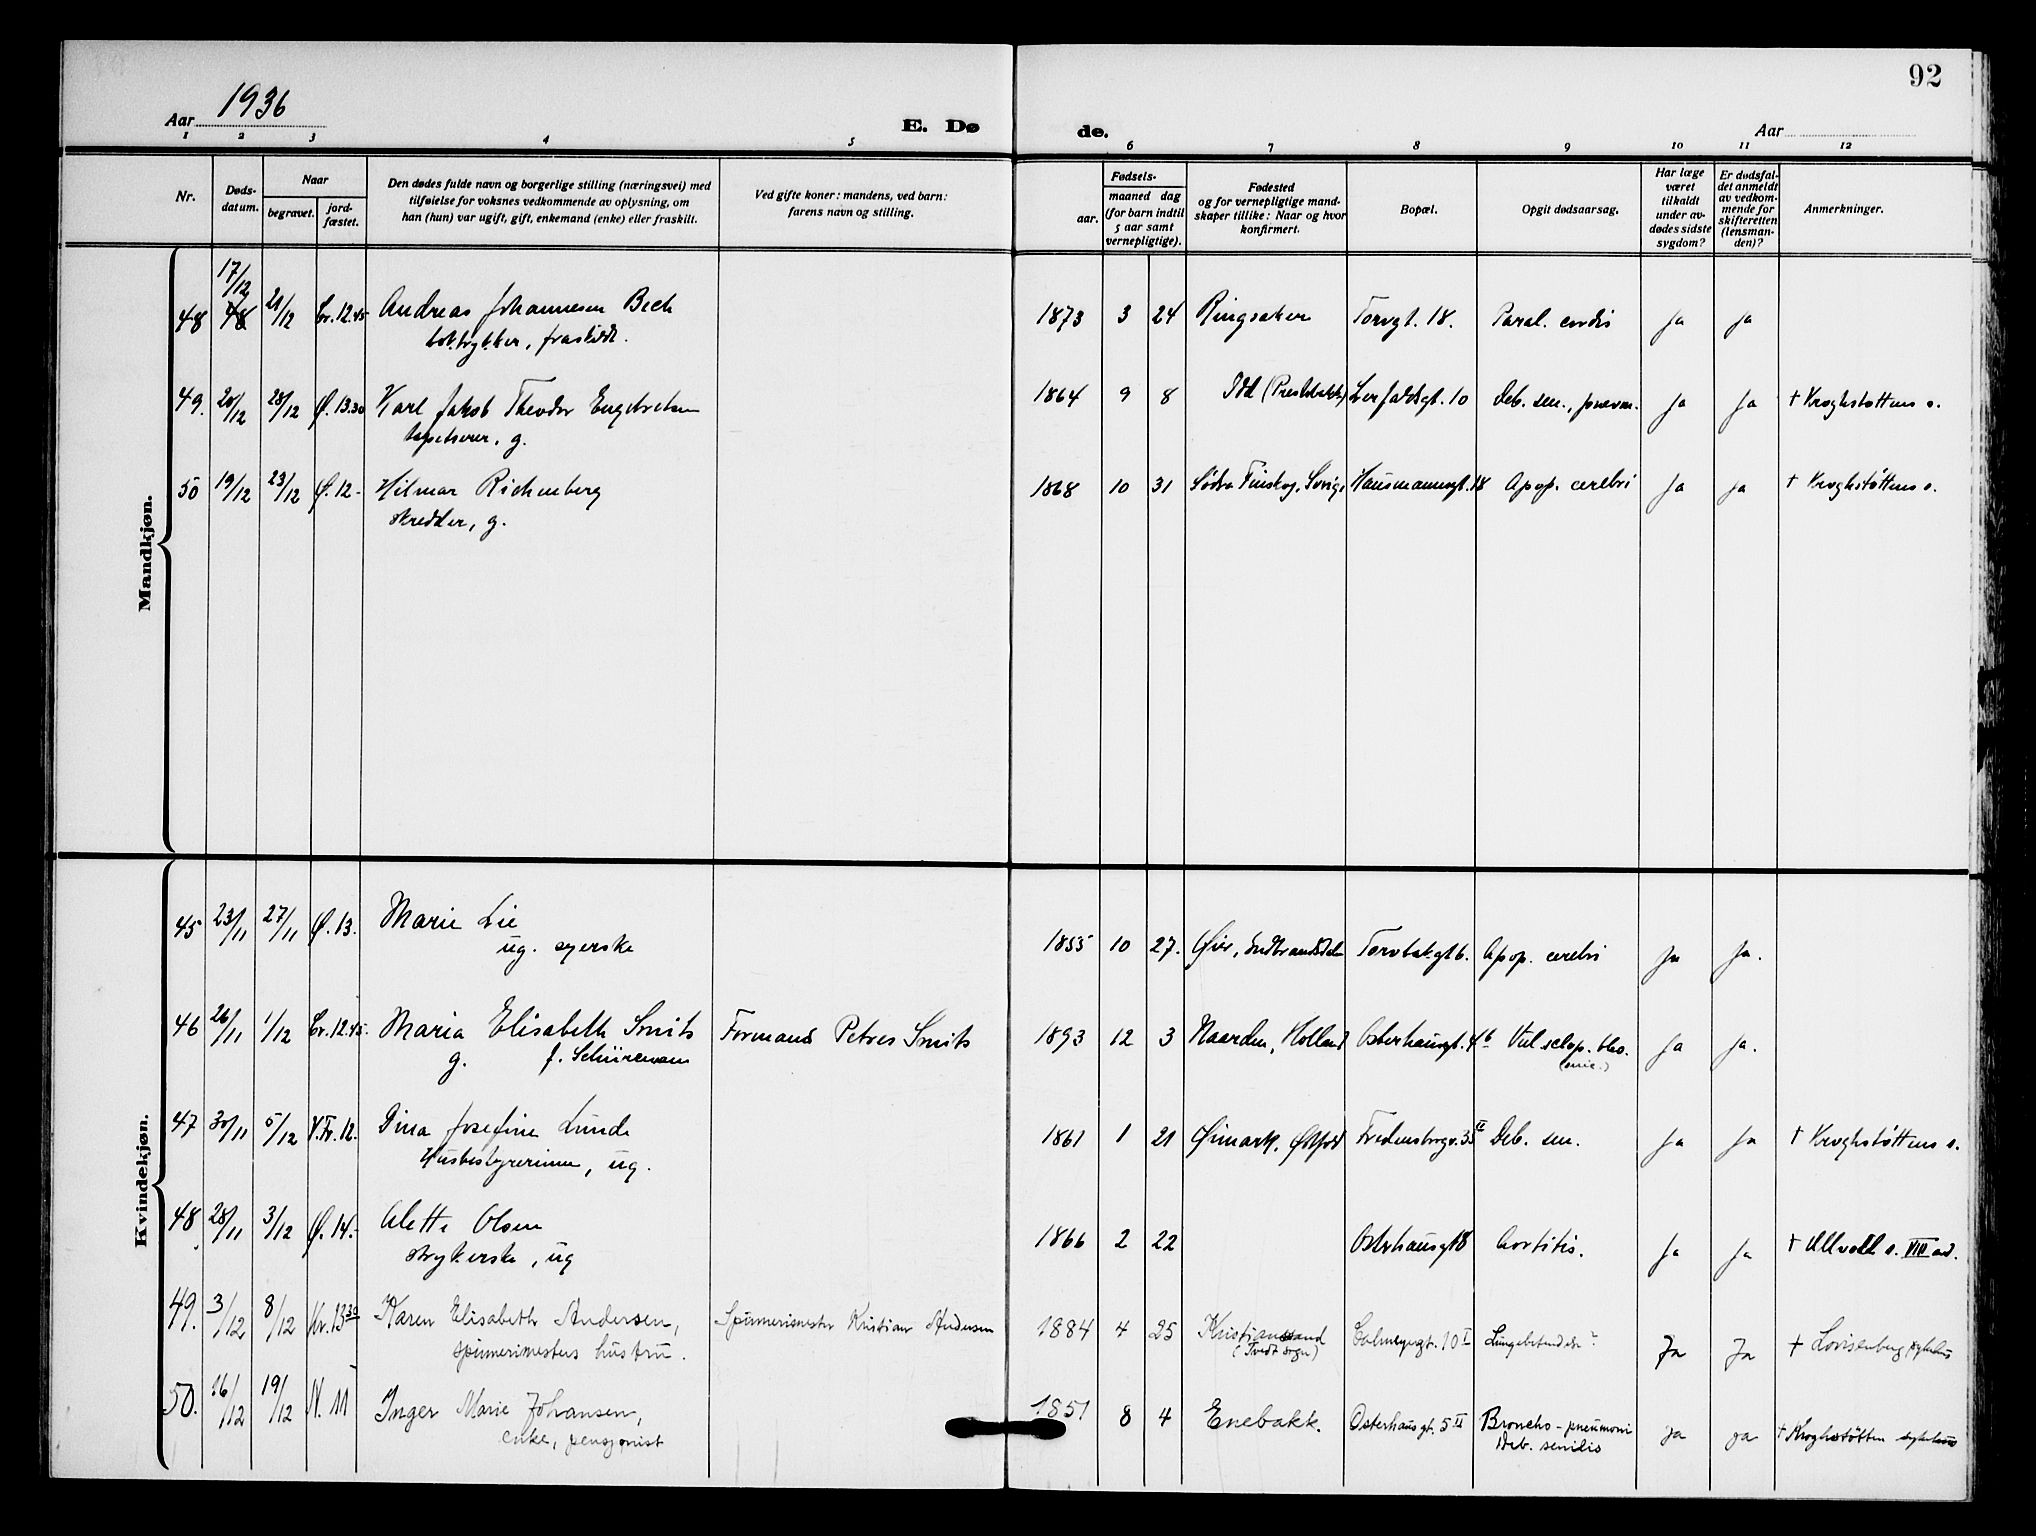 92
Aar 1936
E. Dø
de.
Aar
1 2 3 4 5 6 7 8 9 10 11 12
Nr.
Døds-
datum.
Naar
begravet.
jord-
fæstet.
Den dødes fulde navn og borgerlige stilling (næringsvei) med
tilføielse for voksnes vedkommende av oplysning, om
han (hun) var ugift, gift, enkemand (enke) eller fraskilt.
Ved gifte koner: mandens, ved barn:
farens navn og stilling.
Fødsels-
aar.
maaned dag
(for barn indtil
5 aar samt
vernepligtige).
Fødested
og for vernepligtige mand-
skaper tillike: Naar og hvor
konfirmert.
Bopæl.
Opgit dødsaarsag.
Har læge
været
tilkaldt
under av-
dødes sidste
sygdom?
Er dødsfal-
det anmeldt
av vedkom-
mende for
skifteretten
(lensman-
den)?
Anmerkninger.
Mandkjøn.
17/12
48 48 21/12 Cr. 12.45 Andreas Johannesen Bech 1873 3 24 Ringsaker Torvgt. 18. Paral. cordis ja ja
boktrykker, fraskildt.
49. 20/12 28/12 Ø. 13.30 Karl Jakob Theodor Engebretsen 1864 9 8 Idd (Prestebakke) 10 Deb. sen., pneum. ja ja † Kroghstøttens s.
tapetserer, g.
50 19/12 23/12 Ø. 12- Hilmar Richenberg 1868 10 31 Södra Finskog, Sverige Hausmannsgt. 18 Apop. cerebri ja ja † Kroghstøttens s.
skredder, g.
Kvindekjøn.
45 23/11 27/11 Ø. 13. Marie Lie 1855 10 27. Øier, Gudbrandsdalen Torvbakgt 6. Apop. cerebri ja ja.
ug. syerske
46 26/11 1/12 Cr. 12.45. Maria Elisabeth Smits Formand Petrus Smits 1893 12 3 Naarden, Holland Osterhausgt. 4b Vul. sclop. ja ja.
g. f. Schürmann
47 30/11 5/12 V.Fr. 12. Dina Josefine Lunde 1861 1 21 Øimark, Østfold Fredensborgv. 35 II Deb. sen. ja ja † Kroghstøttens s.
Husbestyrerinne, ug.
48 28/11 3/12 Ø. 14.- Alette Olsen 1866 2 22 Osterhausgt 8 Aortitis. ja ja † Ullevåll s. VIII avd.
strykerske, ug
49. 3/12 8/12 Kr. 13 30 Karen Elisabeth Andersen, Spinnerimester Kristian Andersen 1884 4 25 Kristiansand Calmeyergt. 10 I Lungebetendelse? Ja Ja † Lovisenberg sykehus
spinnerimesters hustru. (Tvedt sogn)
50. 16/12 19/12 N. 11 Inger Marie Johansen, 1851 8 4 Enebakk. Osterhausgt. 5 II Broncho-pneumoni ja ja † Kroghstøtten sykehus
enke, pensjonist Deb. senilis